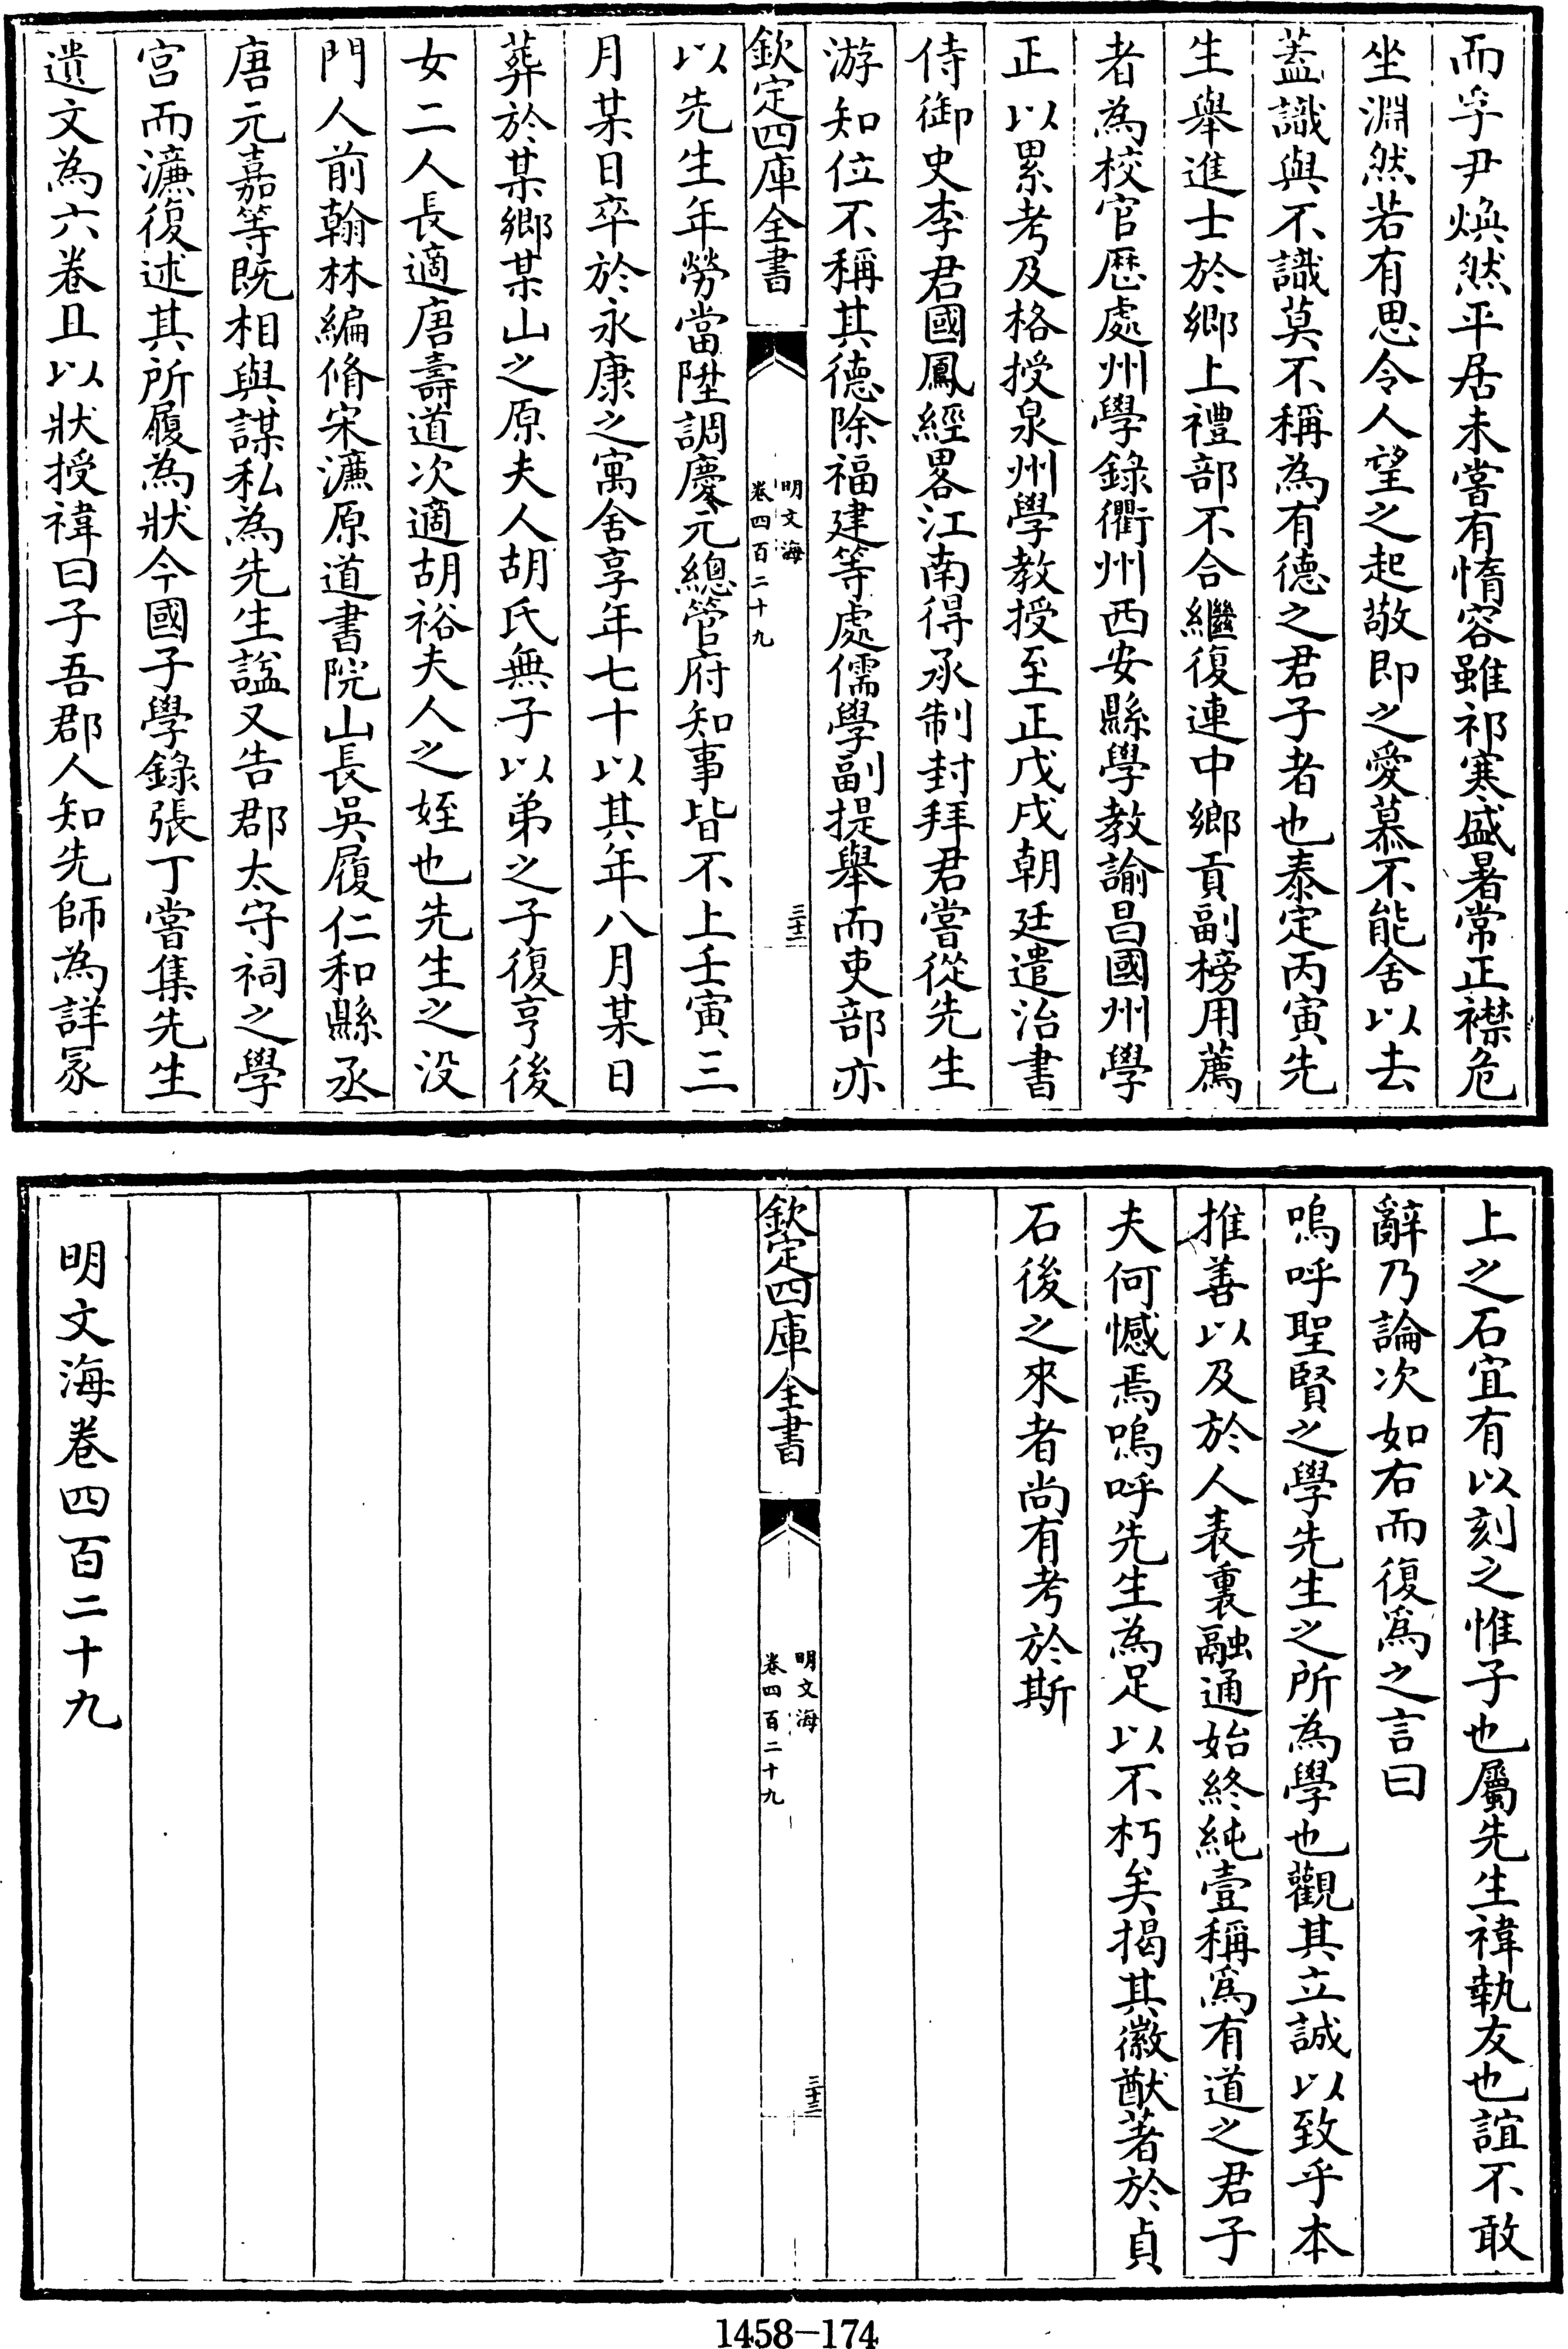 而孚尹煥然平居未嘗有惰容雖祁寒盛暑常正襟危
坐淵然若有思令人望之起敬即之愛慕不能舍以去
蓋識與不識莫不稱為有德之君子者也泰定丙寅先
生舉進士於鄉上禮部不合繼復連中鄉貢副榜用薦
者為校官歴處州學錄衢州西安縣學教諭昌國州學
正以累考及格授泉州學教授至正戊戌朝廷遣治書
侍御史李君國鳳經畧江南得承制封拜君嘗從先生
游知位不稱其德除福建等處儒學副提舉而吏部亦
欽定四庫全書
明文海
卷四百二十九
三十二
以先生年勞當陞調慶元總管府知事皆不上壬寅三
月某日卒於永康之寓舍享年七十以其年八月某日
葬於某鄉某山之原夫人胡氏無子以弟之子復亨後
女二人長適唐壽道次適胡裕夫人之姪也先生之沒
門人前翰林編脩宋濂原道書院山長吳履仁和縣丞
唐元嘉等既相與謀私為先生諡又告郡太守祠之學
宮而濂復述其所履為狀今國子學錄張丁嘗集先生
遺文為六卷且以狀授禕曰子吾郡人知先師為詳冢
上之石宜有以刻之惟子也屬先生禕執友也誼不敢
辭乃論次如右而復爲之言曰
嗚呼聖賢之學先生之所為學也觀其立誠以致乎本
推善以及於人表裏融通始終純壹稱爲有道之君子
夫何憾焉嗚呼先生為足以不朽矣揭其徽猷著於貞
石後之來者尚有考於斯
欽定四庫全書
明文海
卷四百二十九
三十三
明文海卷四百二十九
1458-174